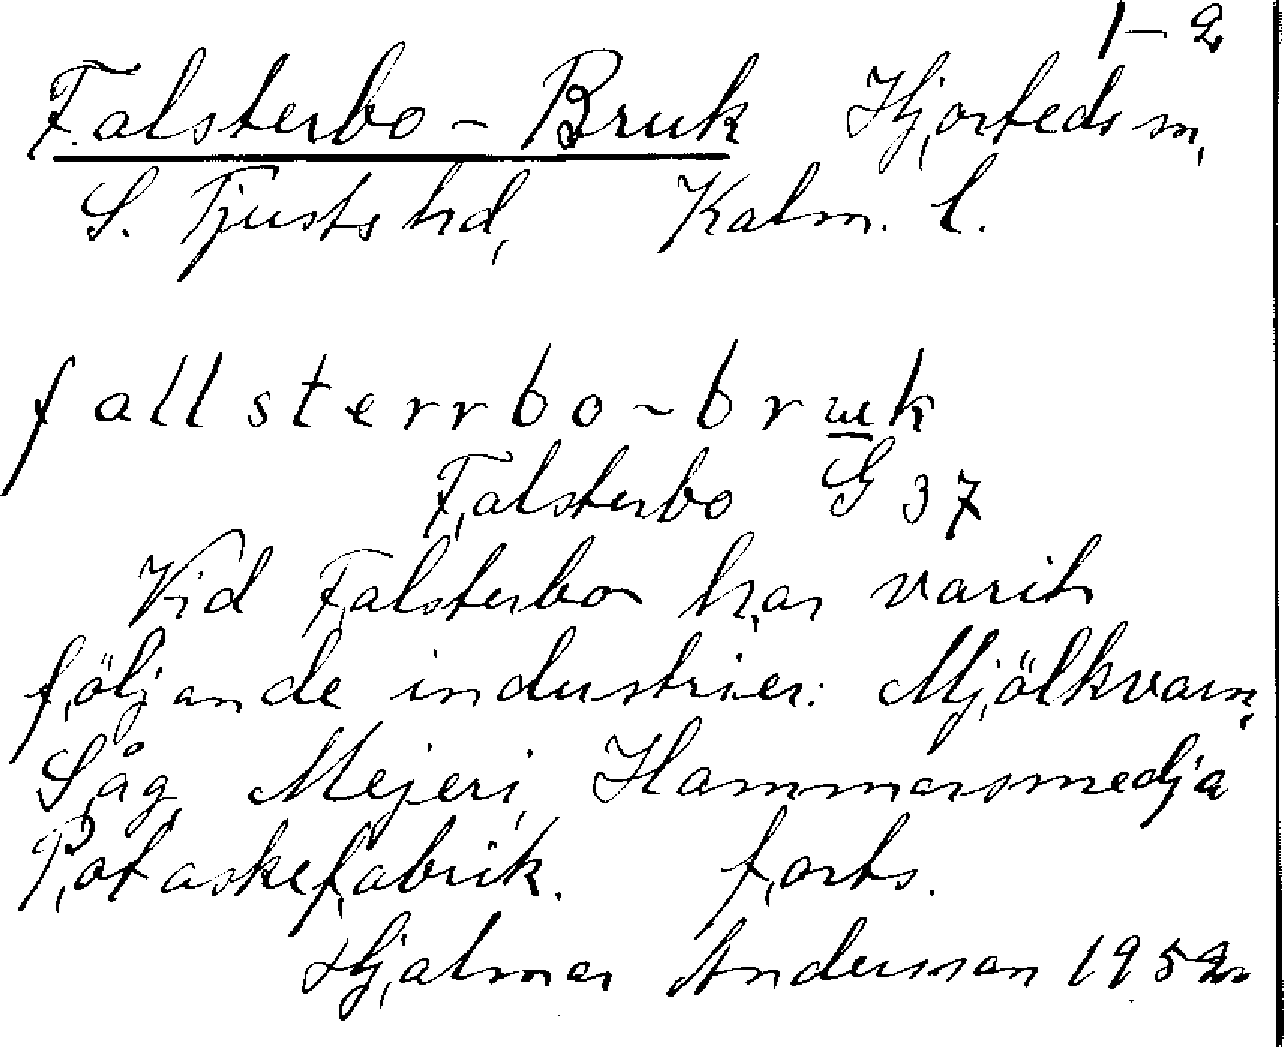 1-2
Falsterbo-Bruk Hjorteds sn,
S. Tjusts hd, Kalm. l.
fallsterrbo-bruk
Falsterbo G 37
Vid Falsterbo har varit
följande industrier: Mjölkvarn,
Såg, Mejeri, Hammarsmedja
Potaskefabrik. forts.
Hjalmar Andersson 1952